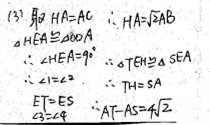 (3) 取 HA=AC ∴ HA=√2AB
△HEA≌△OOA
∴ ∠HEA=90° ∴ △TEH≌△SEA
∴ ∠1=∠2 ∴ TH=SA
ET=ES
∠3=∠4 ∴ AT-AS=4√2